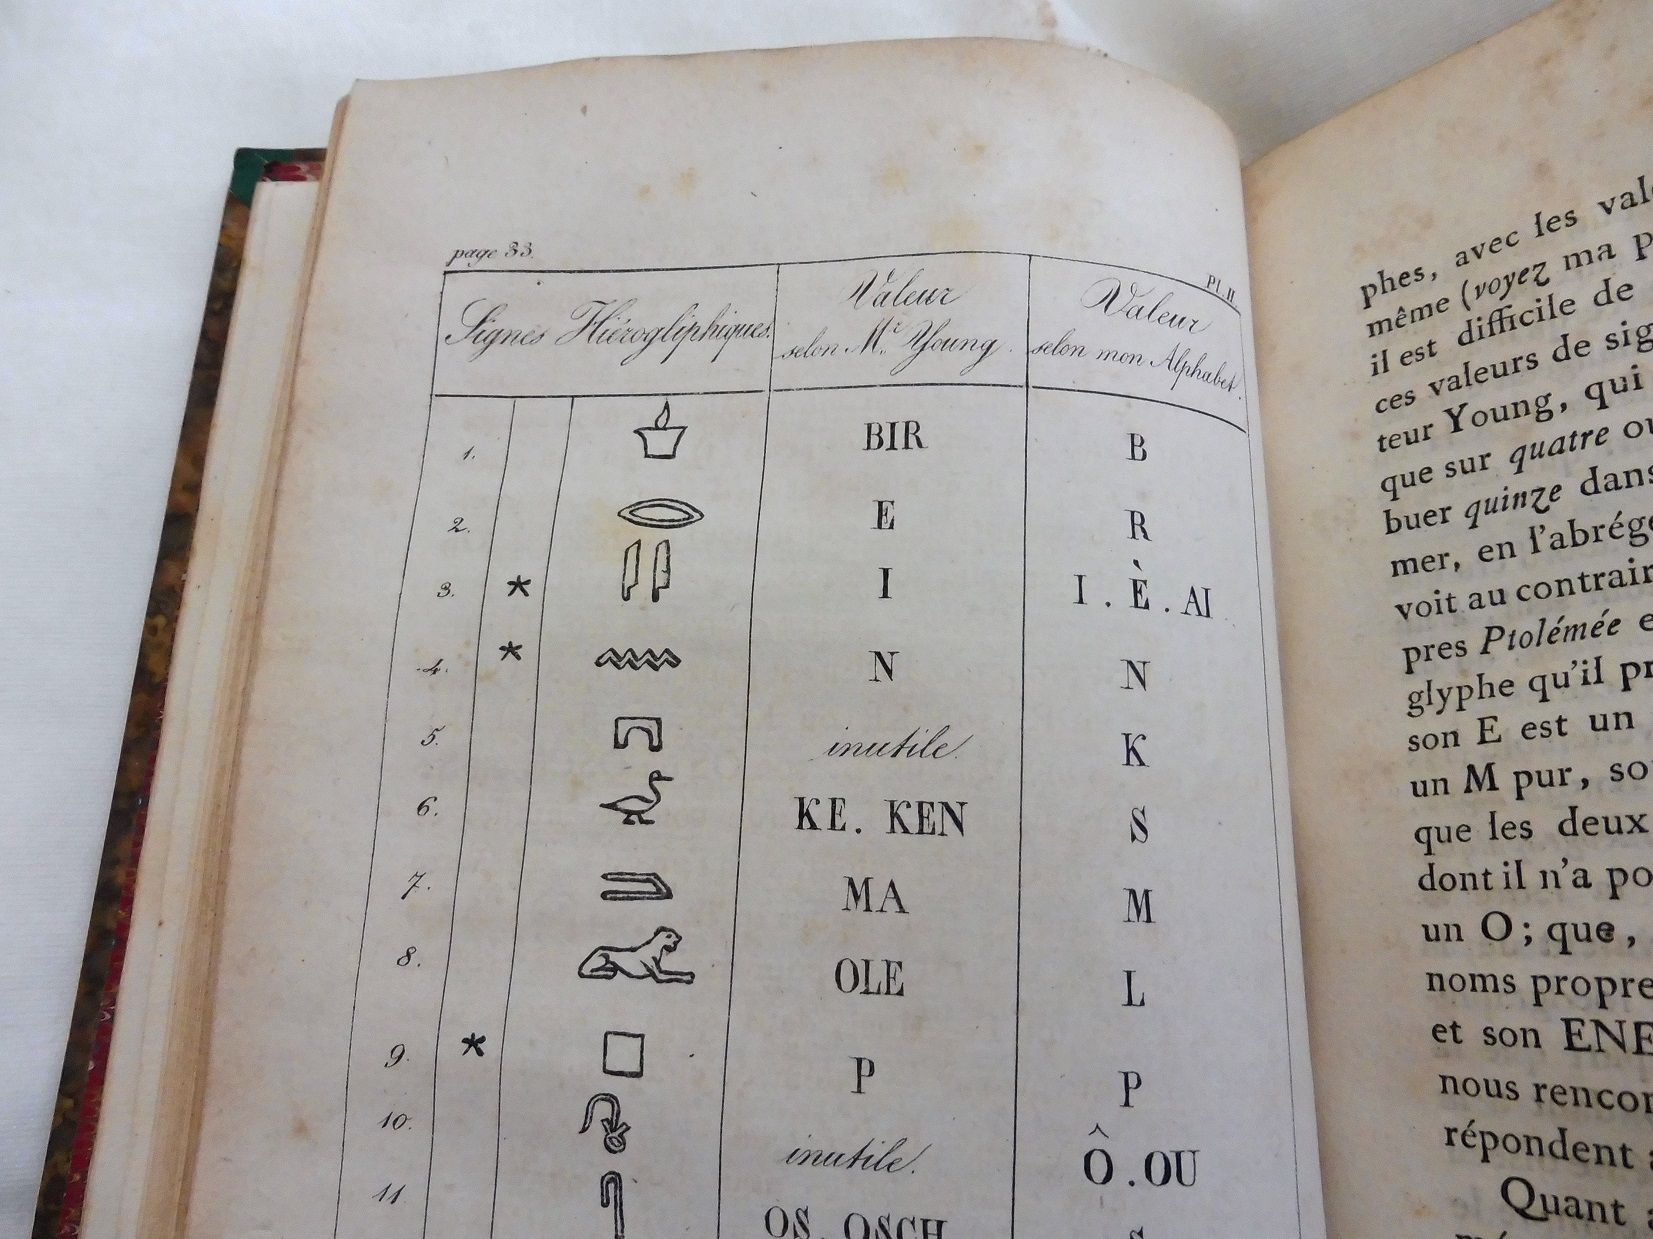 page 33.
Pl. II.
Signes Hiérogliphiques.
Valeur
selon Mr. Young.
Valeur
selon mon Alphabet.
1. BIR B
2. E R
3. * I I . È . AI
4. * N N
5. inutile. K
6. KE. KEN S
7. MA M
8. OLE L
9. * P P
10. inutile. Ô . OU
11 OS. OSCH S
phes, avec les
même (voyez ma
il est difficile de
ces valeurs de
teur Young, qui
que sur quatre
buer quinze dans
mer, en l'abrégé
voit au
pres Ptolémée
glyphe qu'il
son E est un
un M pur,
que les deux
dont il n'a
un O; que,
noms
et son
nous
répondent
Quant